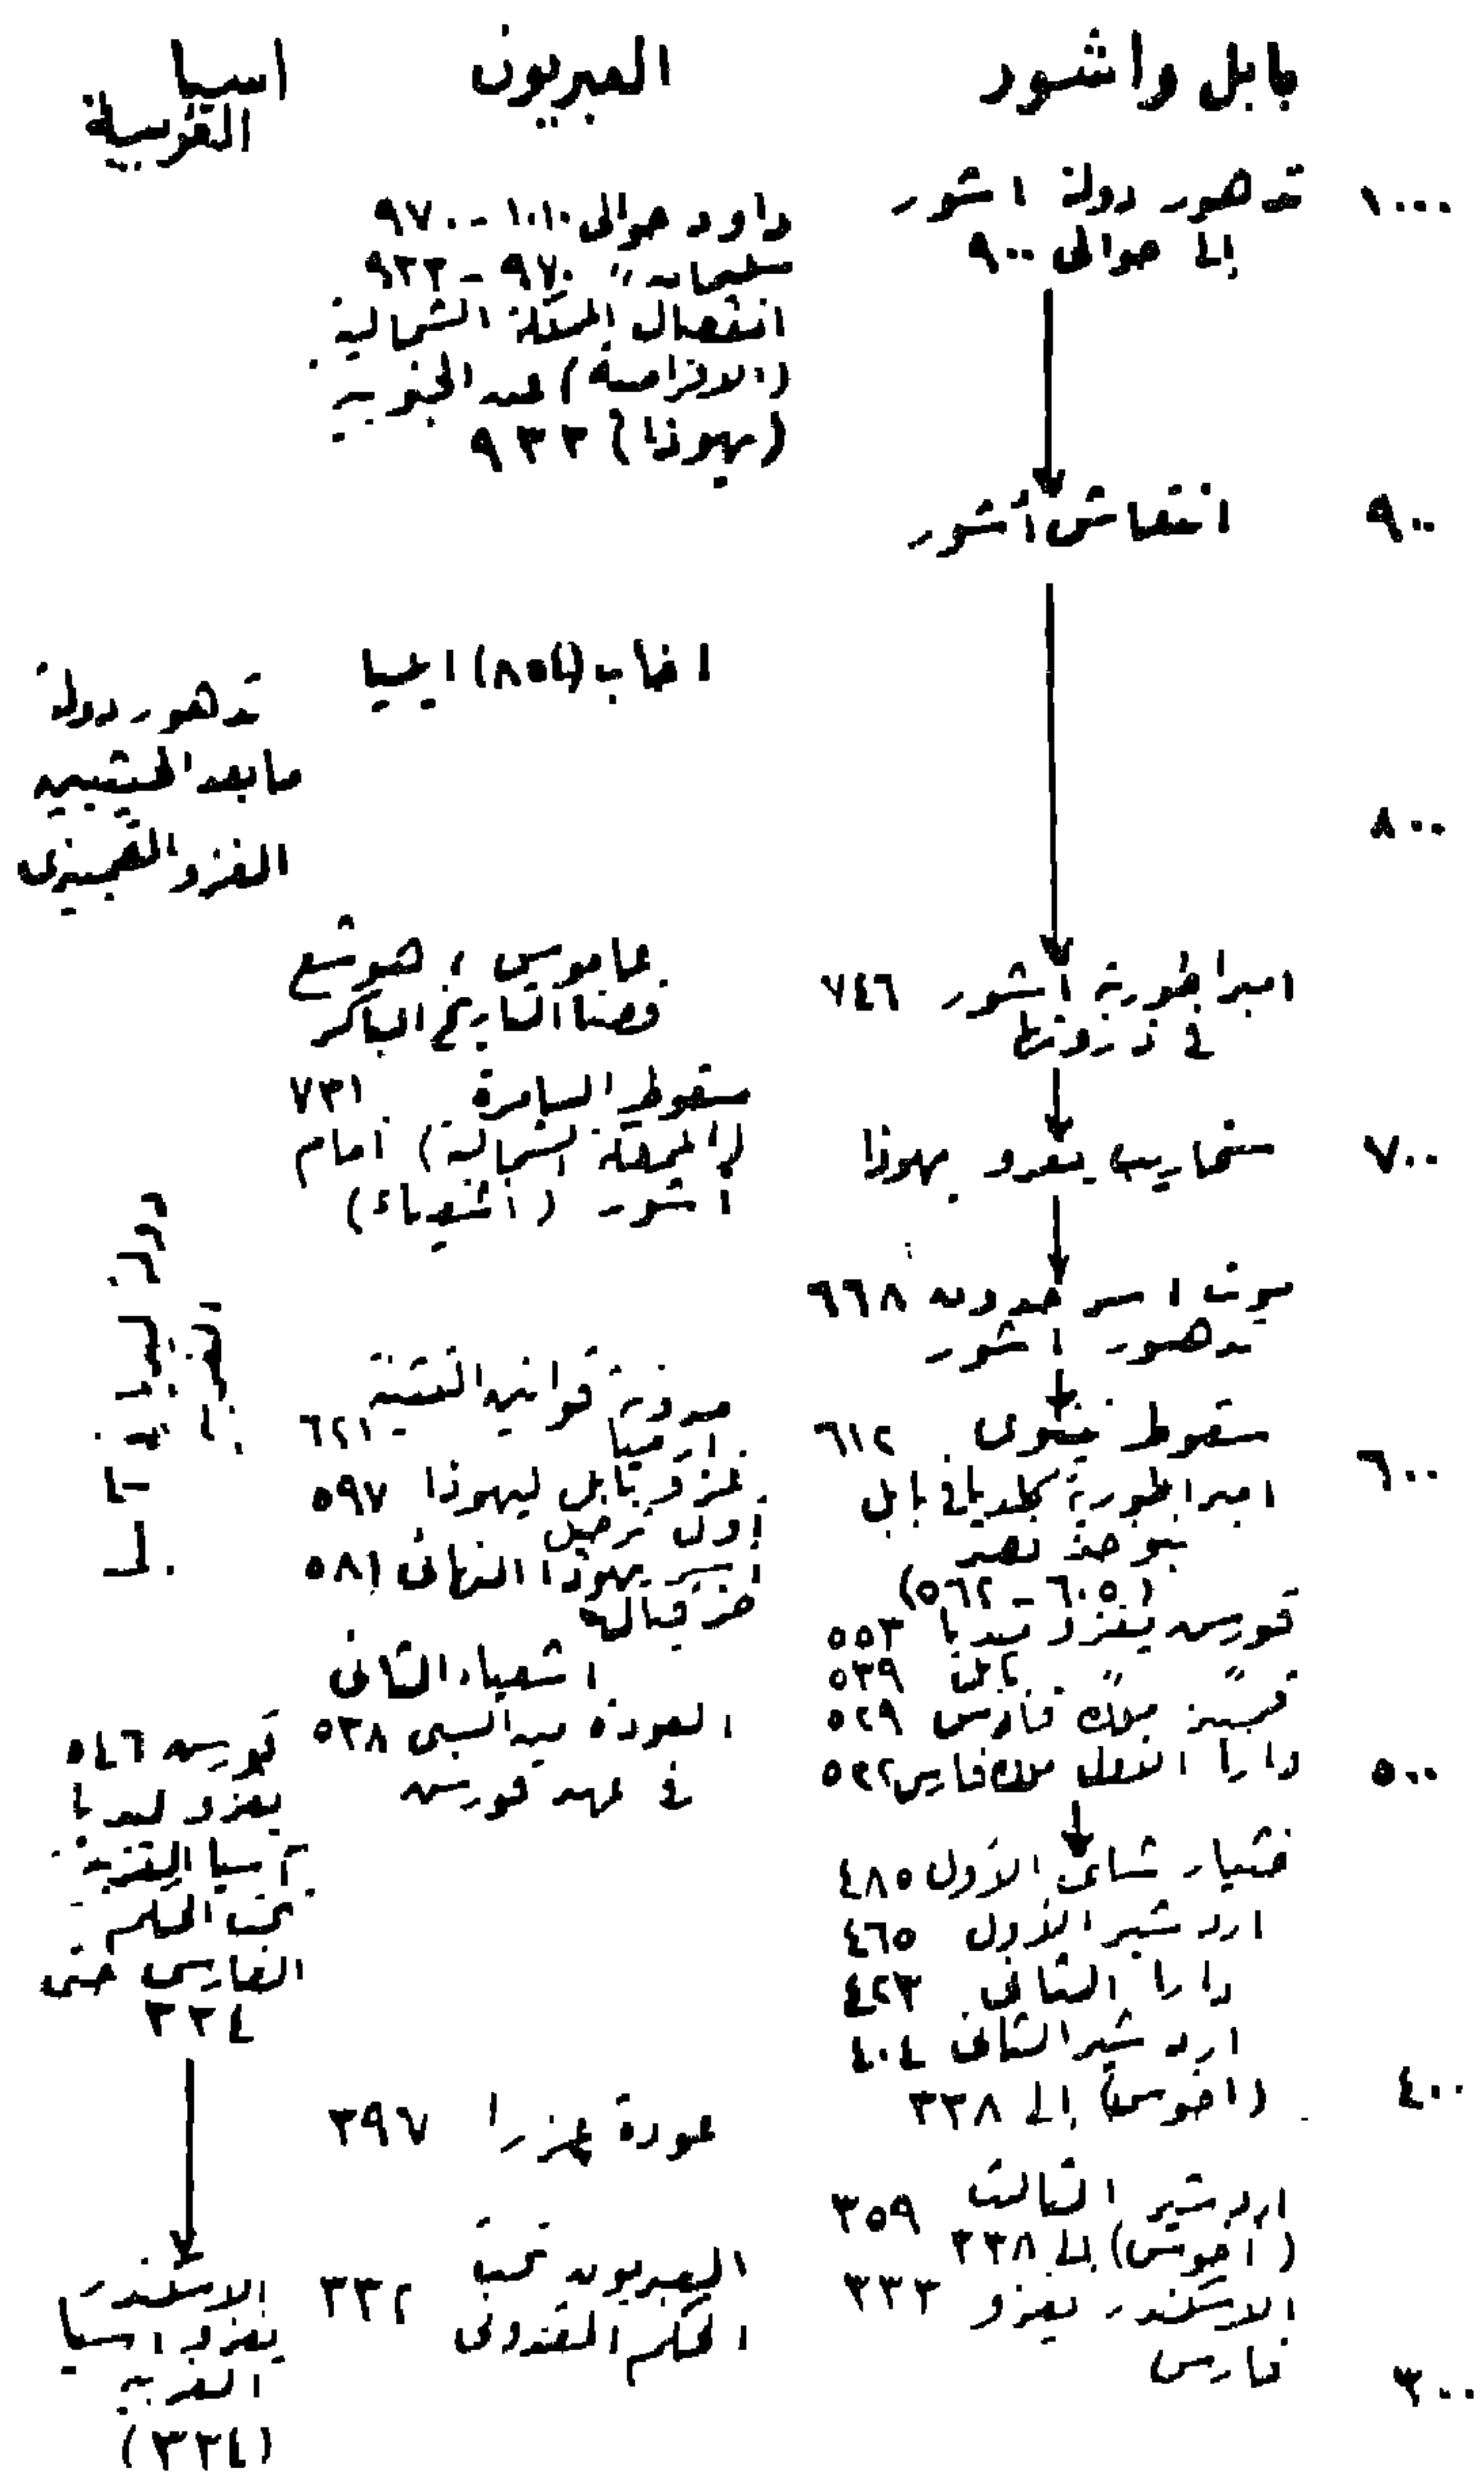 بابل واشور
١٠٠٠ تدهور دولة اشور
إلى حوالى ٩٠٠
٩٠٠ انتعاش أشور
٨٠٠
امبراطورية أشور ٧٤٦
فى ذروتها
٧٠٠ سنحاريب يغزو يهوذا
موت اسر حدون ٦٦٨
تدهور اشور
سقوط نينوى ٦١٢
٦٠٠ امبراطورية كلديا فى بابل
نبوخذ نصر
(٦٠٥ - ٥٦٢)
قورس يغزو ميديا ٥٥٣
" " بابل ٥٣٩
قمبيز ملك فارس ٥٢٩
٥٠٠ دارا الأول ملك فارس ٥٢٢
خشيارشاى الأول ٤٨٥
اردشير الأول ٤٦٥
دارا الثانى ٤٢٣
اردشير الثانى ٤٠٤
٤٠٠ (اخوس) إلى ٣٣٨
اردشير الثالث ٣٥٩
(أخوس) إلى ٣٣٨
الاسكندر يغزو ٣٣٣
فارس
٣٠٠
العبريون
داود حوالى ١٠١٠ - ٩٧٠
سليمان " ٩٧٠ - ٩٣٣
انفصال المملكة الشمالية
(الافرامية) عن الجنوبية
(يهوذا) ٩٣٣
اخاب (٨٥٤) ايليا
عاموس ، هوشع
قصتا التاريخ الباكر
سقوط السامرة ٧٣١
(المملكة الشمالية) أمام
أشور (أشعياء)
مدونة قوانين التثنية ٦٢١
ارميا
غزو بابل ليهوذا ٥٩٧
أول ترحيل
أسر يهوذا النهائى ٥٨١
حزقيال
اشعياء الثانى
العودة من السبى ٥٣٨
فى عهد قورس
عودة عزرا ٣٩٧
العبريون تحت
الحكم المقدونى ٣٣٢
اسيا
الغربية
تدهور دولة
ما بعد الحيثيين
الغزو القمبيزى
قورس ٥٤٦
يغزو ليديا
آسيا الغربية
تحت الحكم
الفارسى حتى
٣٣٤
الاسكندر
يغزو اسيا
الغربية
(٣٣٤)